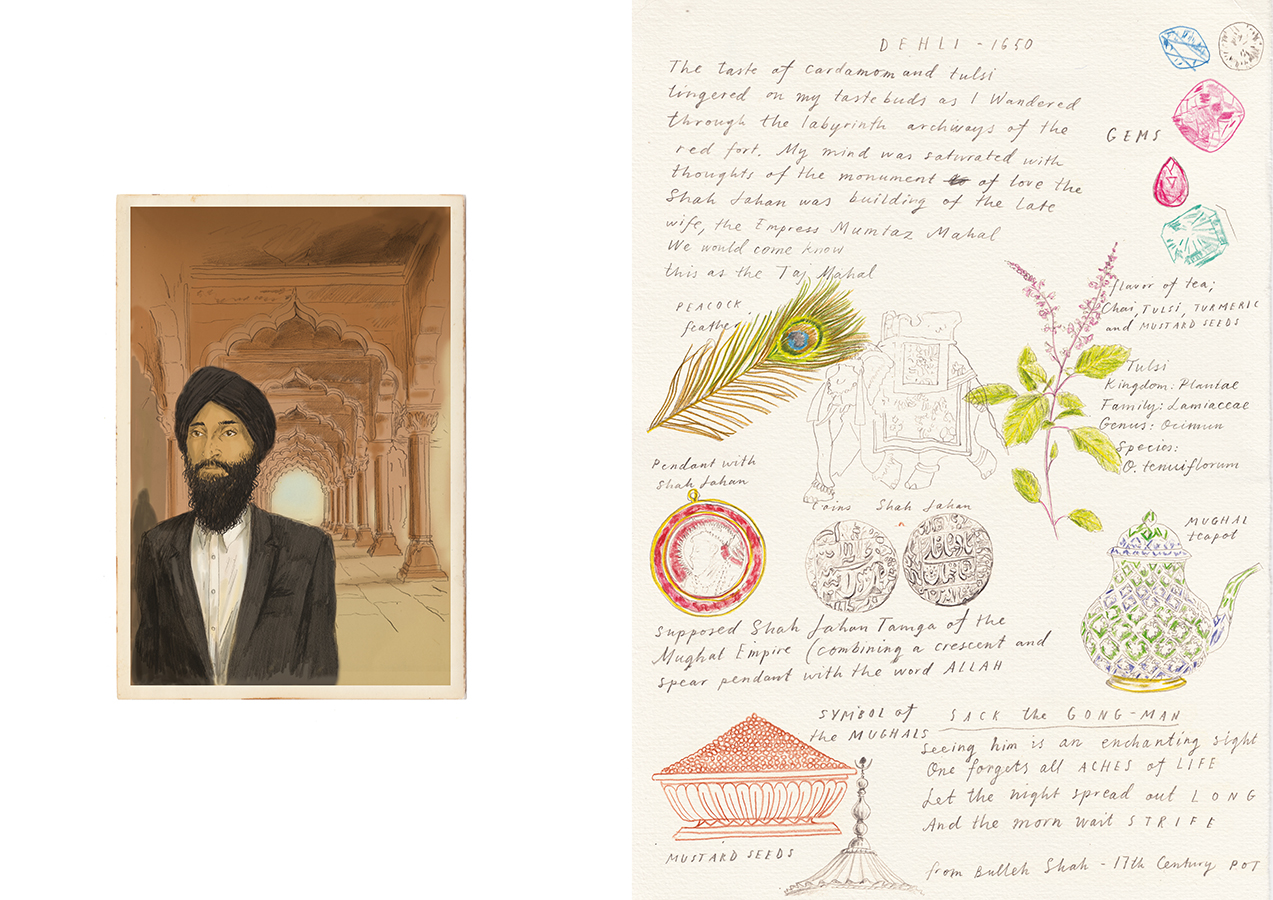 DEHLI - 1650
The taste of cardamom and tulsi
lingered on my tastebuds as I wandered
through the labyrinth archways of the
red fort. My mind was saturated with
thoughts of the monument of love the
Shah Jahan was building of the late
wife, the Empress Mumtaz Mahal
We would come know
this as the Taj Mahal
GEMS
PEACOCK
feather
flavor of tea;
Chai, TULSI, TURMERIC
and MUSTARD SEEDS
Tulsi
Kingdom: Plantae
Family: Lamiaceae
Genus: Ocimun
Species:
O. tenuiflorum
Pendant with
Shah Jahan
Coins Shah Jahan
MUGHAL
teapot
Supposed Shah Jahan Tamga of the
Mughal Empire (combining a crescent and
spear pendant with the word ALLAH
SYMBOL of
the MUGHALS
MUSTARD SEEDS
SACK the GONG-MAN
Seeing him is an enchanting sight
One forgets all ACHES of LIFE
Let the night spread out LONG
And the morn wait STRIFE
from Bulleh Shah - 17th Century POT